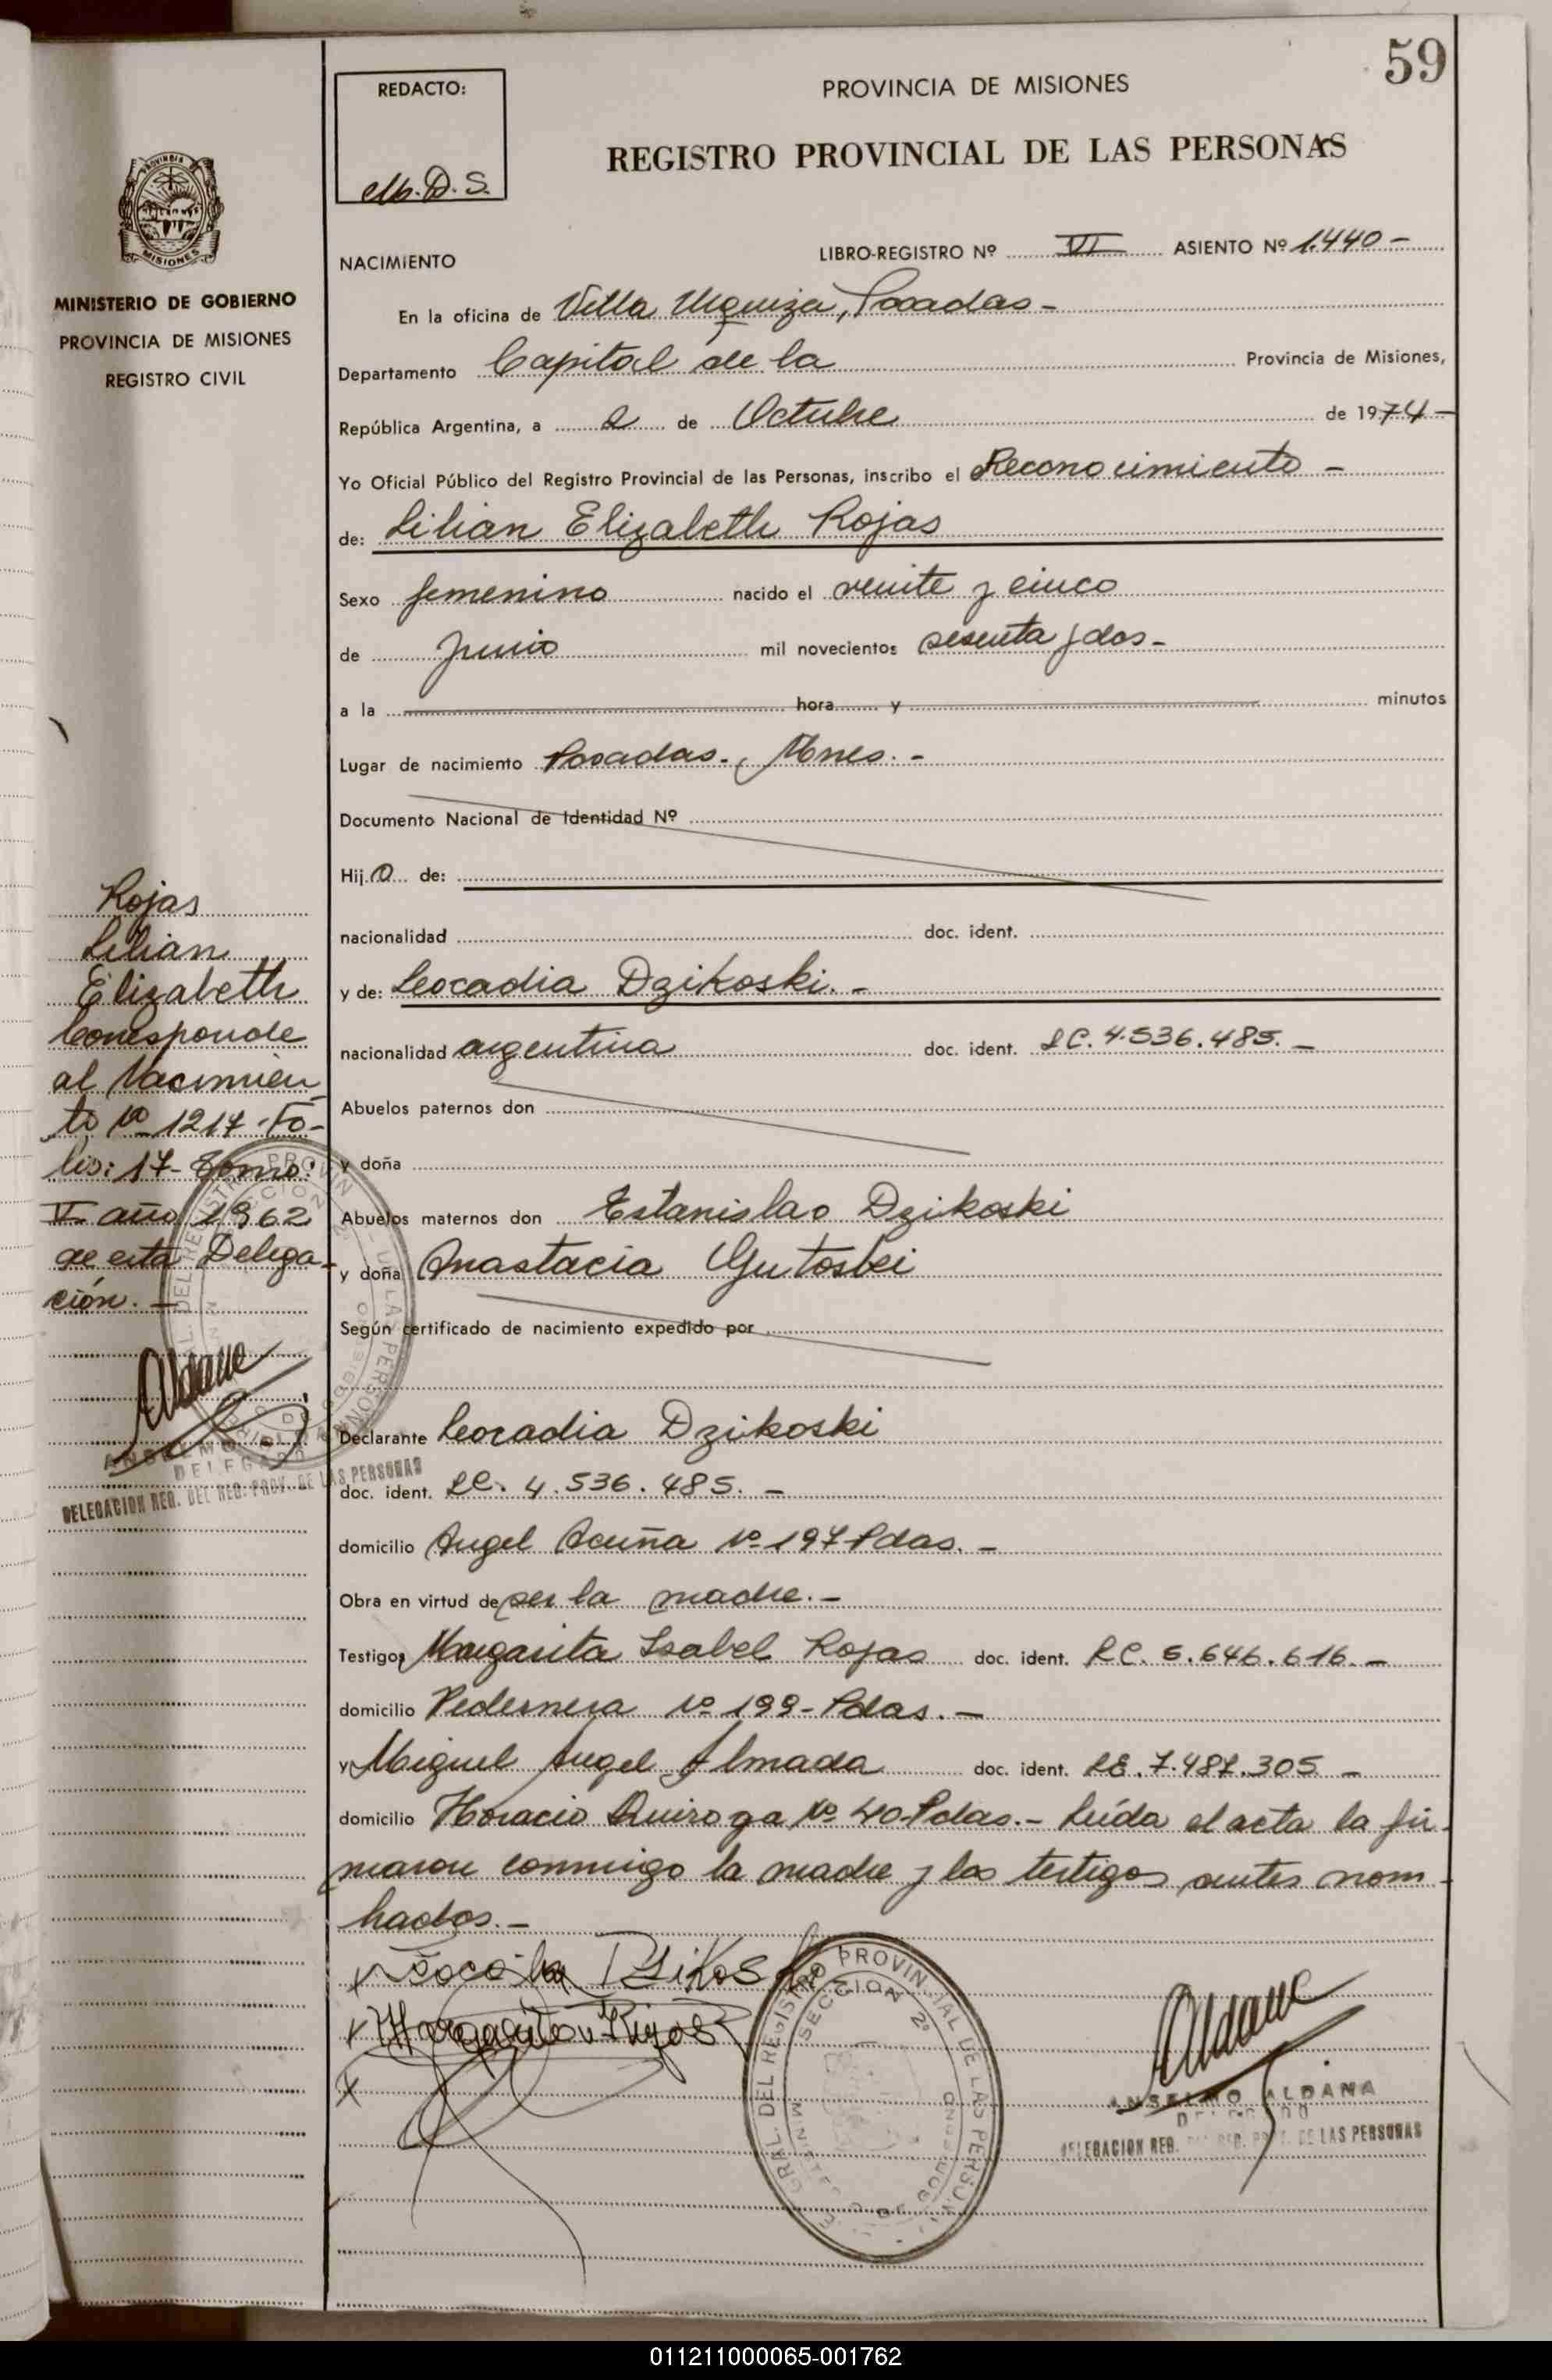 59
REDACTO:
PROVINCIA DE MISIONES
REGISTRO PROVINCIAL DE LAS PERSONAS
PROVINCIA
MISIONES
MINISTERIO DE GOBIERNO
PROVINCIA DE MISIONES
REGISTRO CIVIL
NACIMIENTO
LIBRO-REGISTRO Nº VI ASIENTO Nº 1.440 -
En la oficina de Villa Urquiza, Posadas -
Departamento Capital de la Provincia de Misiones,
República Argentina, a 2 de Octubre de 1974 -
Yo Oficial Público del Registro Provincial de las Personas, inscribo el Reconocimiento -
de: Lilian Elizabeth Rojas
Sexo femenino nacido el veinte y cinco
de Junio mil novecientos sesenta y dos -
a la hora y minutos
Lugar de nacimiento Posadas - Mnes. -
Documento Nacional de Identidad Nº
Hij a de:
nacionalidad doc. ident.
y de: Leocadia Dzikoski. -
nacionalidad argentina doc. ident. LC. 4.536.485. -
Abuelos paternos don
y doña
Abuelos maternos don Estanislao Dzikoski
y doña Anastacia Gutoski
Según certificado de nacimiento expedido por
Declarante Leocadia Dzikoski
doc. ident. LC. 4.536.485. -
domicilio Angel Acuña Nº 197 Pdas. -
Obra en virtud de ser la madre. -
Testigos Margarita Isabel Rojas doc. ident. LC. 5.646.616. -
domicilio Pedernera Nº 199 - Pdas. -
y Miguel Angel Almada doc. ident. LE. 7.487.305 -
domicilio Horacio Quiroga Nº 40 Pdas. - Leída el acta la fir-
maron conmigo la madre y los testigos antes nom-
brados. -
Rojas
Lilian
Elizabeth
Corresponde
al Nacimien
to Nº 1217 - Fo-
lio: 17 - Tomo:
V - año 1962
de esta Delega-
ción. -
Aldana
ANSELMO
DELEGADO
DELEGACION REG. DEL REG. PROV. DE LAS PERSONAS
GRAL. DEL REGISTRO PROVINCIAL DE LAS PERSONAS
SECCION 2º
Aldana
ANSELMO ALDANA
DELEGADO
DELEGACION REG. DEL REG. PROV. DE LAS PERSONAS
011211000065-001762